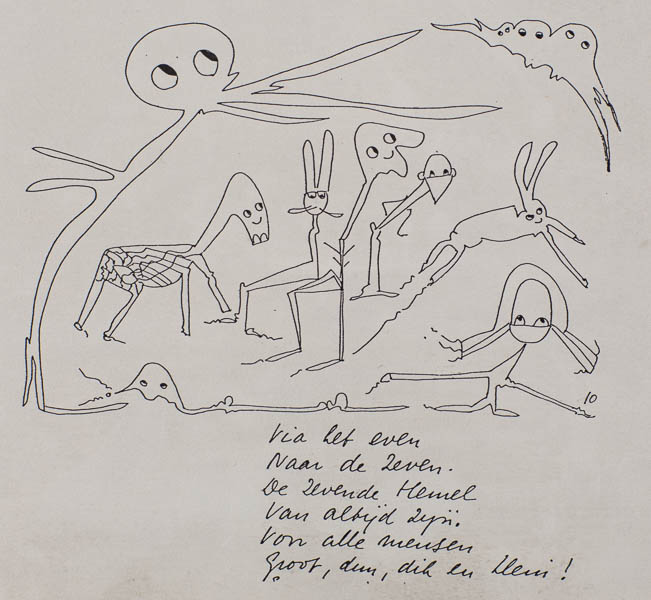 10
Via het even
Naar de Zeven.
De Zevende Hemel
Van altijd Zijn.
Voor alle mensen
Groot, dun, dik en klein!